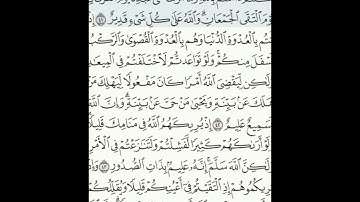 يَوْمَ ٱلْتَقَى ٱلْجَمْعَانِ وَٱللَّهُ عَلَىٰ كُلِّ شَىْءٍ قَدِيرٌ ٤١
أَنتُم بِٱلْعُدْوَةِ ٱلدُّنْيَا وَهُم بِٱلْعُدْوَةِ ٱلْقُصْوَىٰ وَٱلرَّكْبُ
أَسْفَلَ مِنكُمْ وَلَوْ تَوَاعَدتُّمْ لَٱخْتَلَفْتُمْ فِى ٱلْمِيعَٰدِ
وَلَٰكِن لِّيَقْضِىَ ٱللَّهُ أَمْرًا كَانَ مَفْعُولًا لِّيَهْلِكَ مَنْ
هَلَكَ عَنۢ بَيِّنَةٍ وَيَحْيَىٰ مَنْ حَىَّ عَنۢ بَيِّنَةٍ وَإِنَّ ٱللَّهَ
لَسَمِيعٌ عَلِيمٌ ٤٢ إِذْ يُرِيكَهُمُ ٱللَّهُ فِى مَنَامِكَ قَلِيلًا
وَلَوْ أَرَىٰكَهُمْ كَثِيرًا لَّفَشِلْتُمْ وَلَتَنَٰزَعْتُمْ فِى ٱلْأَمْرِ
وَلَٰكِنَّ ٱللَّهَ سَلَّمَ إِنَّهُۥ عَلِيمٌۢ بِذَاتِ ٱلصُّدُورِ ٤٣ وَإِذْ
يُرِيكُمُوهُمْ إِذِ ٱلْتَقَيْتُمْ فِىٓ أَعْيُنِكُمْ قَلِيلًا وَيُقَلِّلُكُمْ